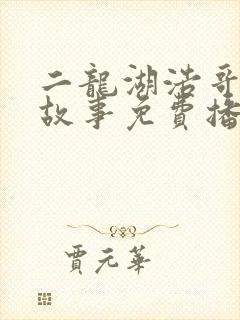 二龍湖浩哥
故事免費播
賈元華